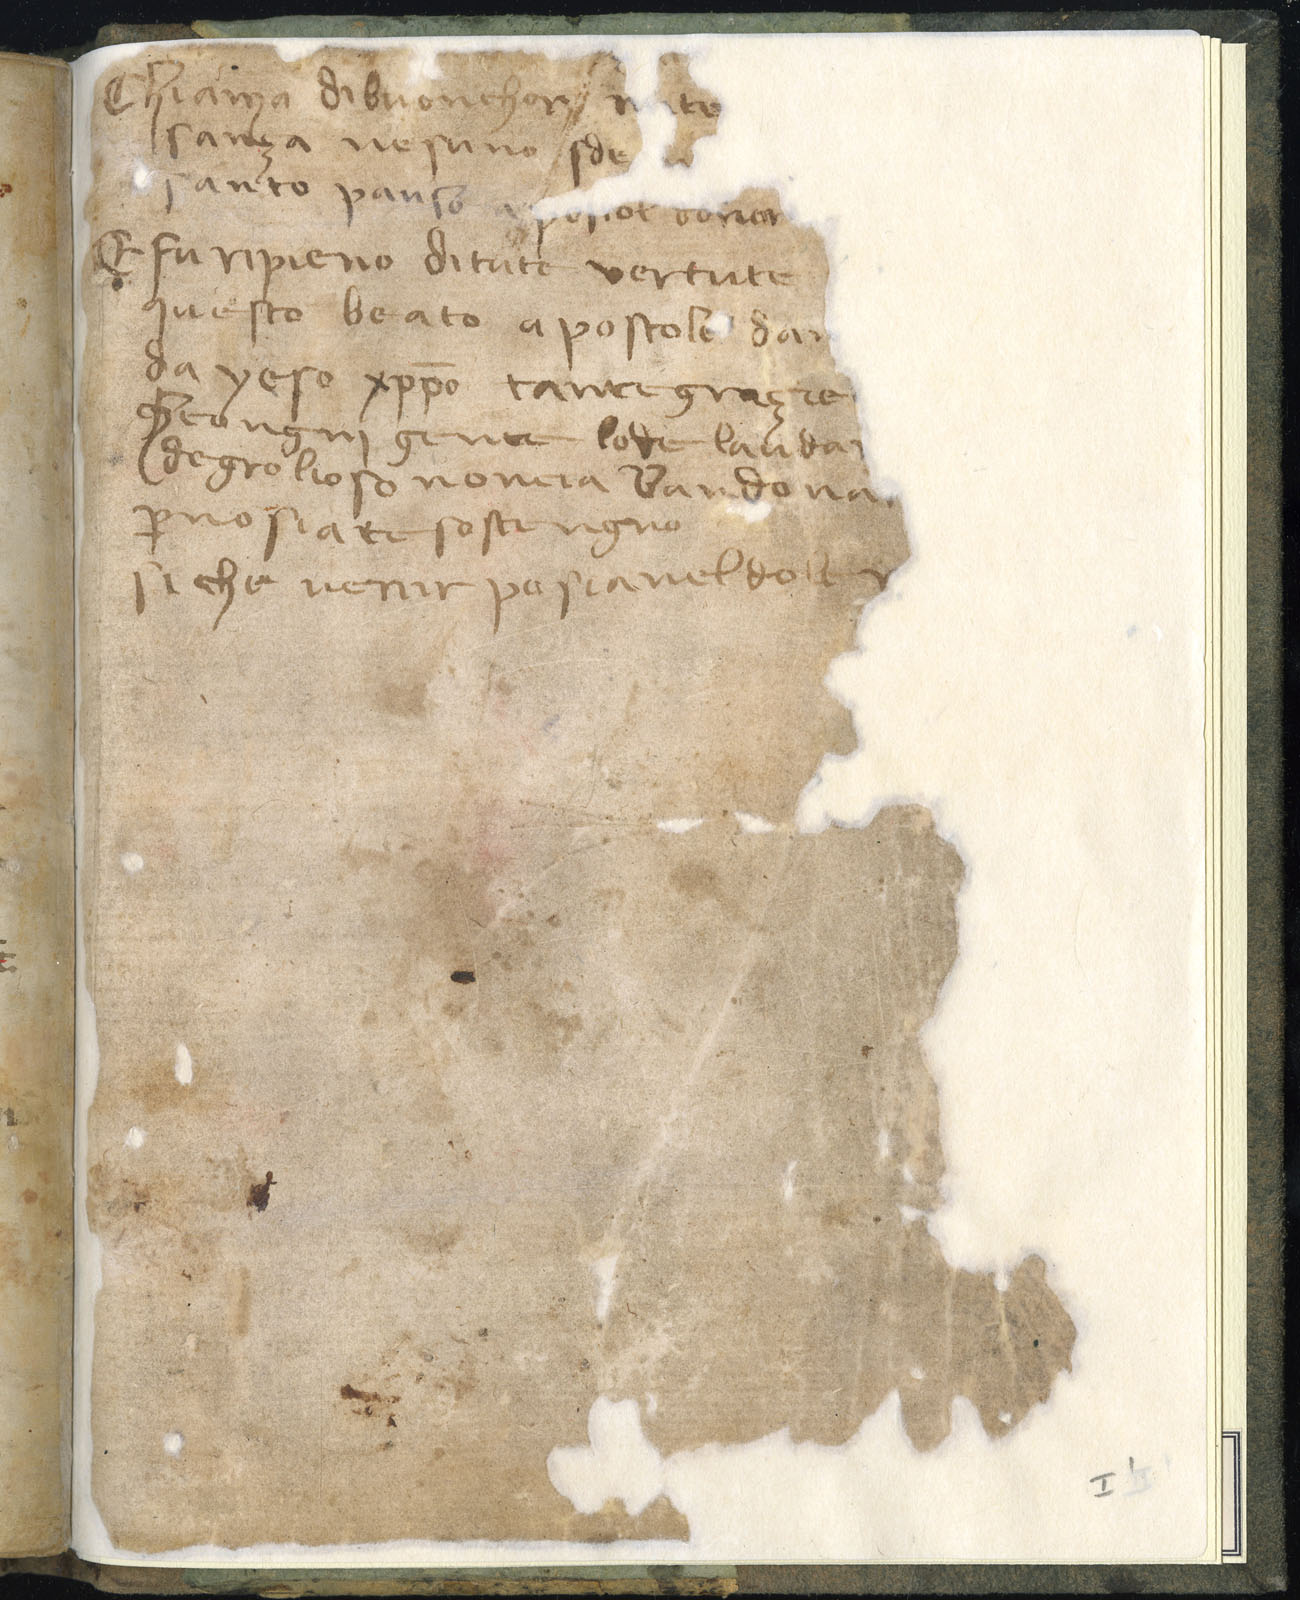 Chiamza di buon chor
sanza nesuno sde
santo paulo apostol
E fu ripieno di tute vertute
questo beato apostole dan
da yeso xppo tante grazie
Se ongni gente lode laudar
de grolioso non cia bandona
p no sia te sostengno
si che venir posia nel dolce r
I